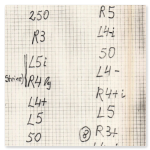 250
R3
L5i
R4
L4+
L5
50
R5
L4i
50
L4-
R4+i
L5
R3+